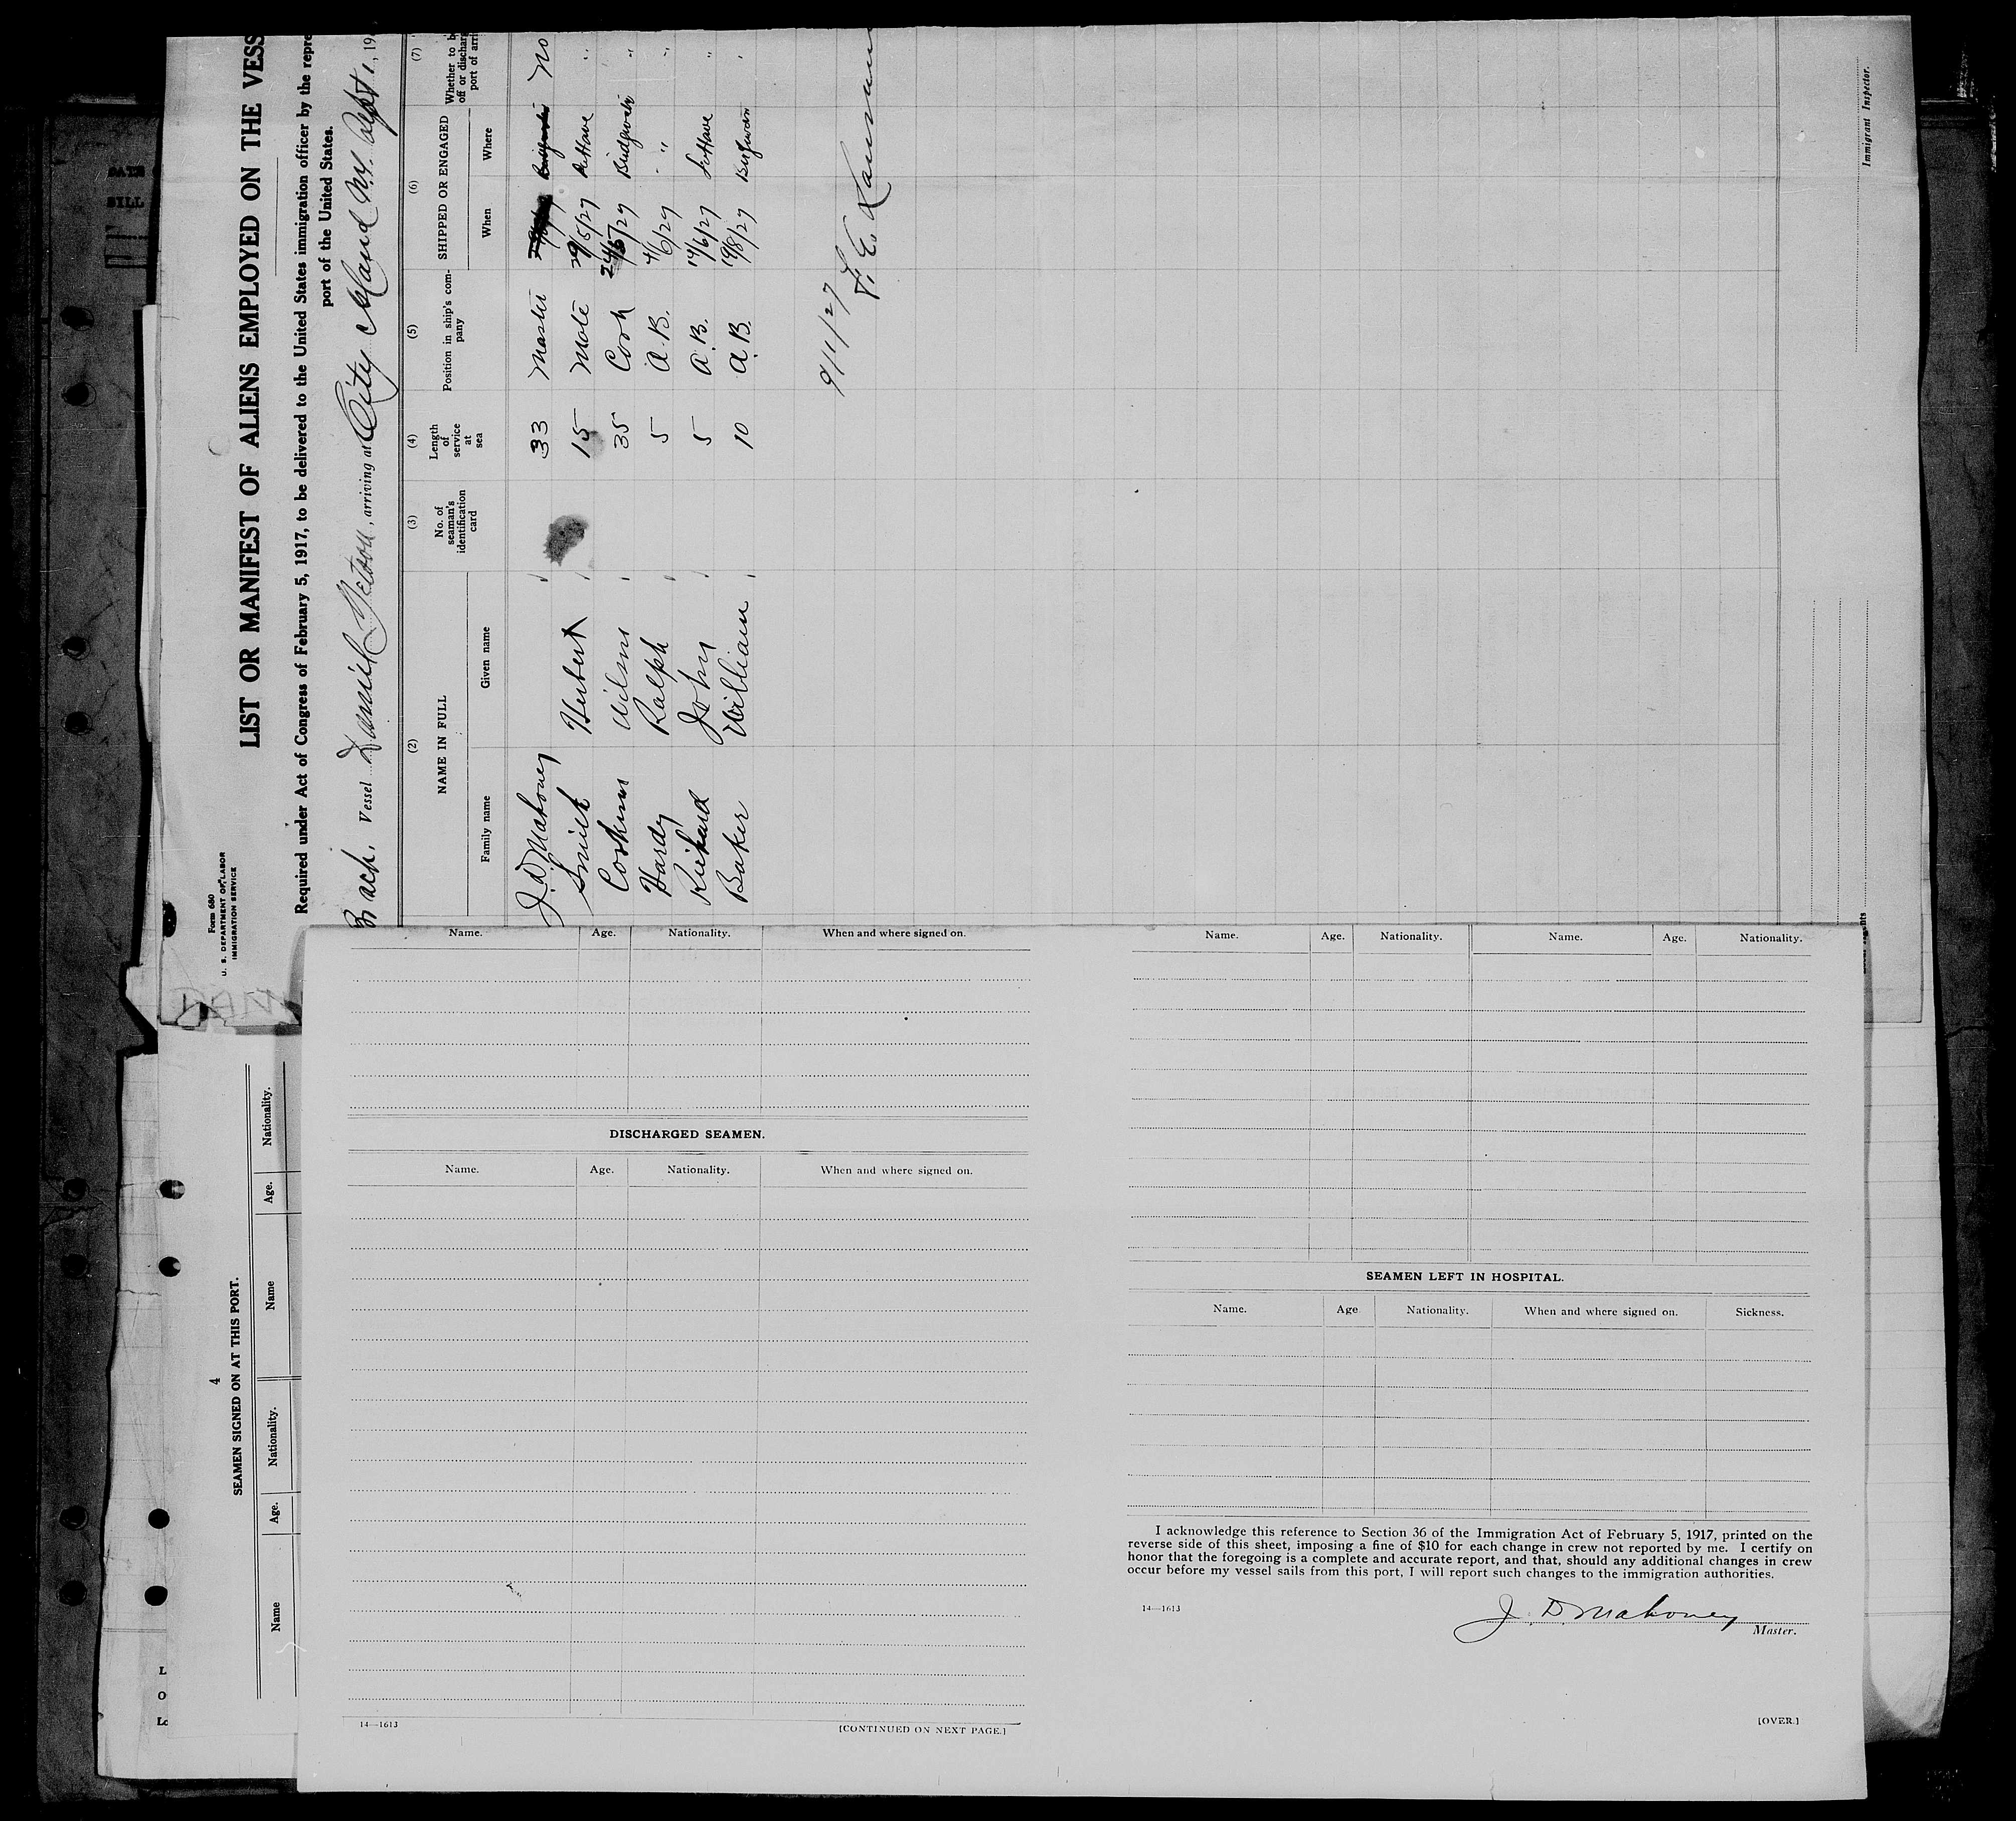 Form 680
U. S. DEPARTMENT OF LABOR
IMMIGRATION SERVICE
LIST OR MANIFEST OF ALIENS EMPLOYED ON THE VESS
Required under Act of Congress of February 5, 1917, to be delivered to the United States immigration officer by the repre
port of the United States.
Vessel Daniel Getson, arriving at City Island N.Y. Sept 1, 19
(2) (3) (4) (5) (6) (7)
NAME IN FULL No. of seaman's identification card Length of service at sea Position in ship's company SHIPPED OR ENGAGED Whether to b off or discharg port of arri
Family name Given name When Where
J. D. Mahoney 33 Master No
Smith Hubert 15 Mate 29/5/27 "
Wilson 35 Cook 24/5/27 "
Hardy Ralph 5 A.B. 4/6/27 " "
Richard John 5 A.B. 14/6/27 "
Baker William 10 A.B. 19/8/27
9/1/27
Immigrant Inspector.
4
SEAMEN SIGNED ON AT THIS PORT.
Name Age. Nationality. Name Age. Nationality.
Name. Age. Nationality. When and where signed on.
DISCHARGED SEAMEN.
Name. Age. Nationality. When and where signed on.
14—1613 [CONTINUED ON NEXT PAGE.]
Name. Age. Nationality. Name. Age. Nationality.
SEAMEN LEFT IN HOSPITAL.
Name. Age Nationality. When and where signed on. Sickness.
I acknowledge this reference to Section 36 of the Immigration Act of February 5, 1917, printed on the
reverse side of this sheet, imposing a fine of $10 for each change in crew not reported by me. I certify on
honor that the foregoing is a complete and accurate report, and that, should any additional changes in crew
occur before my vessel sails from this port, I will report such changes to the immigration authorities.
14—1613 J. D. Mahoney
Master.
[OVER.]